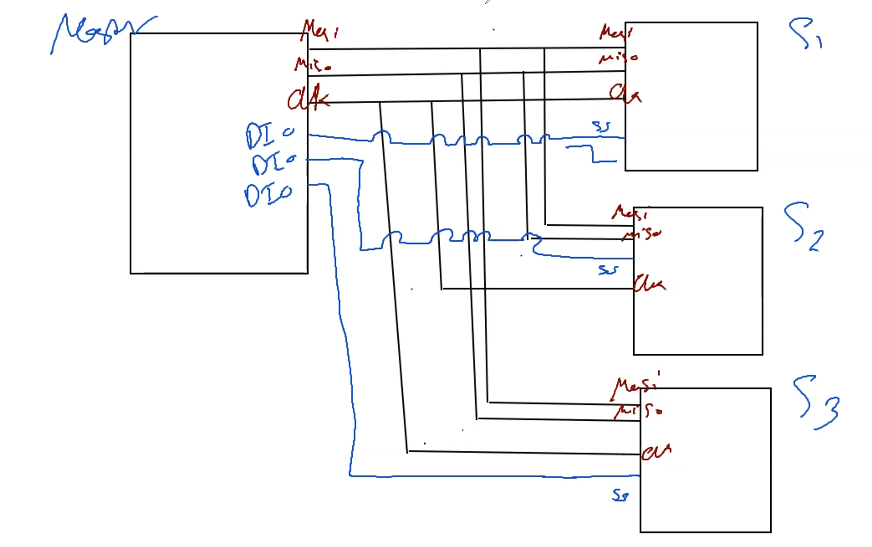 Master
Mosi
Miso
clk
DIO
DIO
DIO
Mosi
Miso
clk
ss
S1
Mosi
Miso
ss
clk
S2
Mosi
Miso
clk
ss
S3